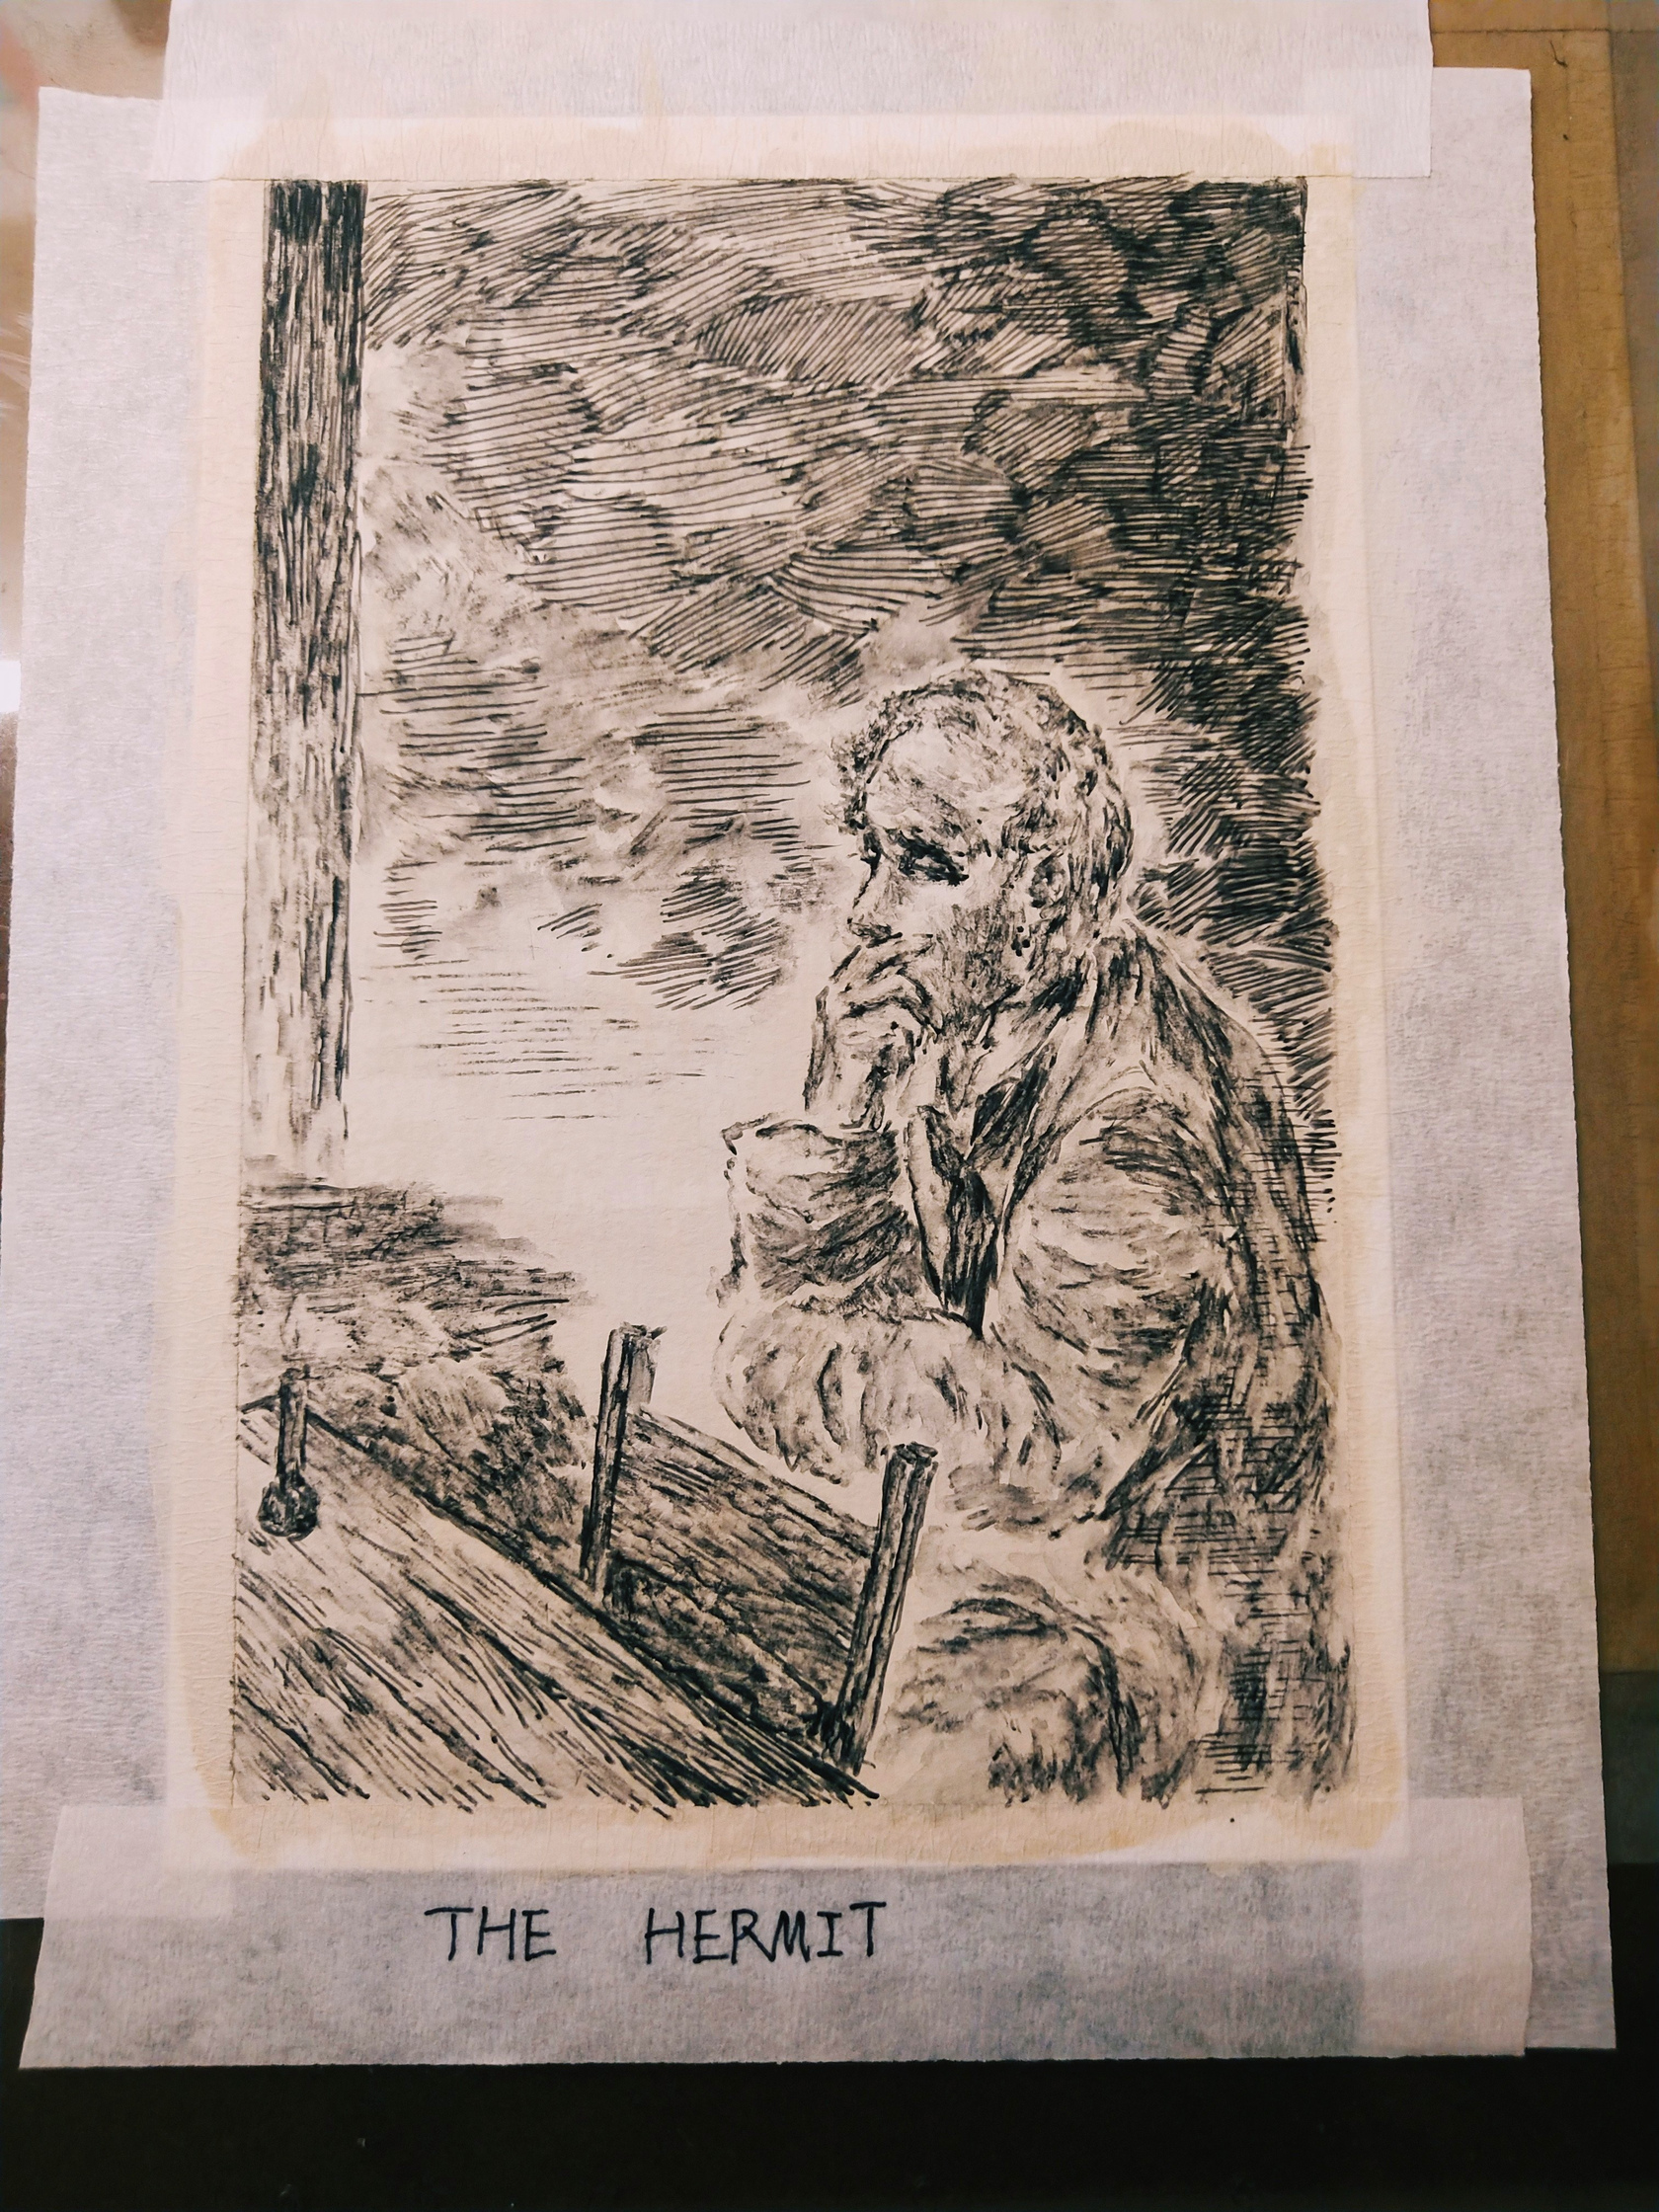 THE HERMIT